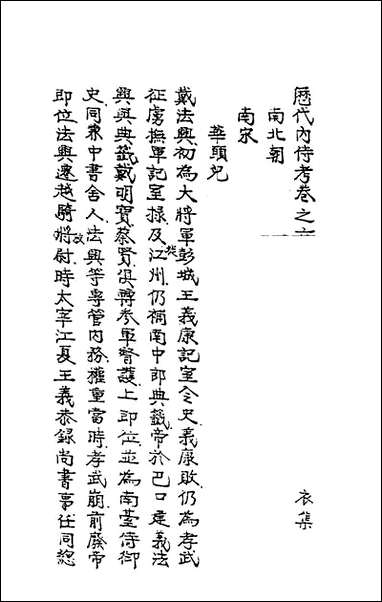 歷代內侍考卷之六　衣集
南北朝
南宋
華願兒
戴法興初為大將軍彭城王義康記室令史義康敗仍為孝武
征虜撫軍記室掾及徙江州仍補南中郎典籤帝於巴口建義法
興與典籤戴明寶蔡閑俱轉參軍督護上即位並為南臺侍御
史同兼中書舍人法興等專管內務權重當時孝武崩前廢帝
即位法興遷越騎校尉時太宰江夏王義恭錄尚書事任同總